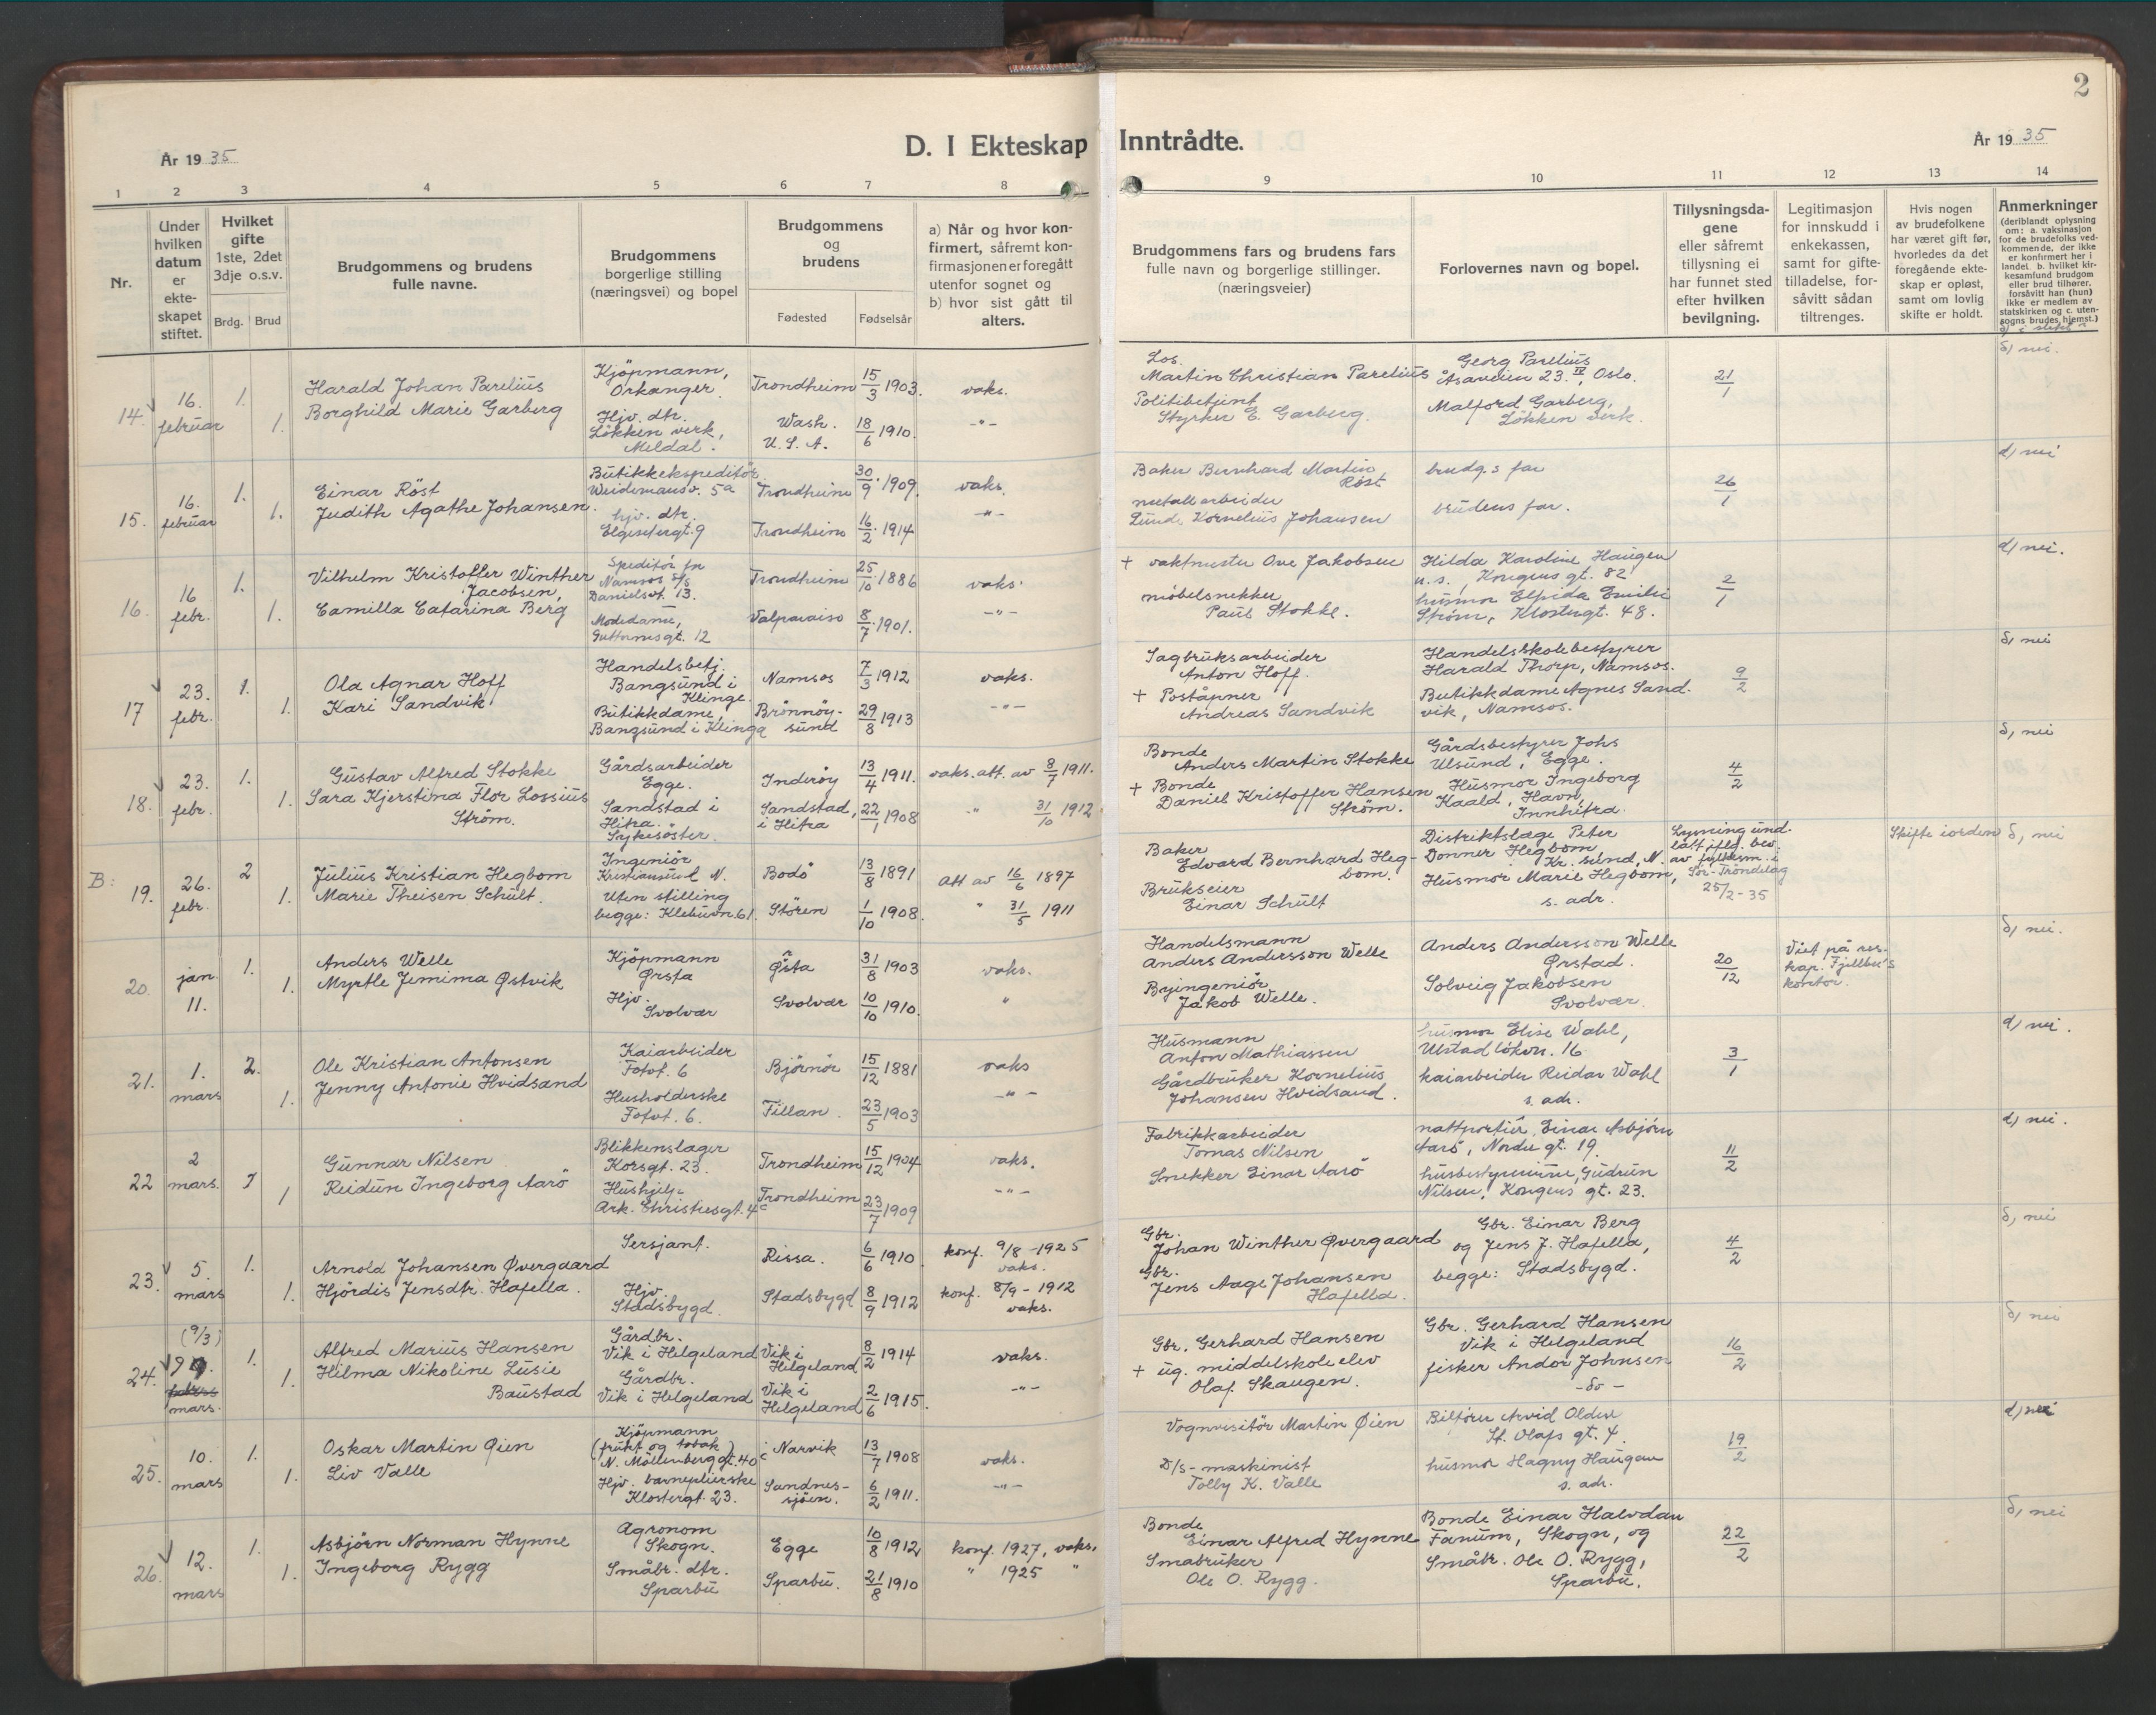 2
År 19 35
D. I Ekteskap Inntrådte.
År 19 35
1 2 3 4 5 6 7 8 9 10 11 12 13 14
Nr.
Under hvilken datum er ekte-skapet stiftet.
Hvilket gifte 1ste, 2det 3dje o.s.v.
Brdg. Brud
Brudgommens og brudens fulle navne.
Brudgommens borgerlige stilling (næringsvei) og bopel
Brudgommens og brudens
Fødested Fødselsår
a) Når og hvor kon-firmert, såfremt kon-firmasjonen er foregått utenfor sognet og b) hvor sist gått til alters.
Brudgommens fars og brudens fars fulle navn og borgerlige stillinger. (næringsveier)
Forlovernes navn og bopel.
Tillysningsda-gene eller såfremt tillysning ei har funnet sted efter hvilken bevilgning.
Legitimasjon for innskudd i enkekassen, samt for gifte-tilladelse, for-såvitt sådan tiltrenges.
Hvis nogen av brudefolkene har været gift før, hvorledes da det foregående ekte-skap er opløst, samt om lovlig skifte er holdt.
Anmerkninger (deriblandt oplysning om: a. vaksinasjon for de brudefolks ved-kommende, der ikke er konfirmert her i landet. b. hvilket kir-kesamfund brudgom eller brud tilhører, forsåvitt han (hun) ikke er medlem av statskirken og c. uten-sogns brudes hjemst.)
14. 16. februar 1. 1.
Harald Johan Parelius
Borghild Marie Garberg
Kjöpmann,
Orkanger.
Hjv. dtr.
Løkken verk,
Meldal.
Trondheim 15/3 1903. vaks.
Wash. U.S.A. 18/6 1910. -"-
Los.
Martin Christian Parelius
Politibetjent
Styrker E. Garberg.
Georg Parelius
Åsaveien 23. IV, Oslo.
Malford Garberg,
Løkken verk.
21/1
d) nei.
15. 16. februar 1. 1.
Einar Röst
Judith Agathe Johansen.
Butikkekspeditör
Weidemansv. 5a
hjv. dtr.
Elgesetergt. 9
Trondheim 30/9 1909. vaks.
Trondheim 16/2 1914 -"-
Baker Bernhard Martin
Röst
metallarbeider
Kornelius Johansen
brudg.s far
brudens far.
26/1
d) nei
16. 16 febr. 1. 1.
Vilhelm Kristoffer Winther
Jacobsen,
Camilla Catarina Berg
Speditör for
Namsos S/S
Danielsvt. 13.
Modedame,
Guttormsgt. 12
Trondheim 25/10 1886 vaks.
Valparaiso 8/7 1901. -"-
+ vaktmester Ove Jakobsen
möbelsnekker
Paul Stokke.
Hilda Karoline Haugen
u.s., Kongens gt. 82
husmor Elfrida Emilie
Ström, Klostergt. 48.
2/1
d) nei.
17 23. febr. 1. 1.
Ola Agnar Hoff
Kari Sandvik
Handelsbetj.
Bangsund i
Klinge.
Butikkdame,
Bangsund i Klinga
Namsos 7/3 1912 vaks.
Brönnöy-
sund 29/8 1913 -"-
Sagbruksarbeider
Anton Hoff.
+ Poståpner
Andreas Sandvik
Handelskolebestyrer
Harald Thorp, Namsos.
Butikkdame Agnes Sand-
vik, Namsos.
9/2
d) nei
18. 23. febr. 1. 1.
Gustav Alfred Stokke
Sara Kjerstina Flor Lossius
Ström.
Gårdsarbeider
Egge.
Sandstad i
Hitra.
Sykesöster.
Inderöy 13/4 1911. vaks. att. av 8/7 1911.
Sandstad,
i Hitra 22/1 1908 " 31/10 1912
Bonde
Anders Martin Stokke
+ Bonde
Daniel Kristoffer Hansen
Ström.
Gårdsbestyrer Johs
Ulsund, Egge.
Husmor Ingeborg
Kaald, Havn,
Innhitra.
4/2
d, nei
B: 19. 26. febr. 2 1.
Julius Kristian Hegbom
Marie Theisen Schult.
Ingeniör
Kristiansund N.
Uten stilling
begge: Klebuvn. 61.
Bodö 13/8 1891 att av 16/6 1897
Stören 1/10 1908. " 31/5 1911
Baker
Edvard Bernhard Heg-
bom.
Brukseier
Einar Schult
Distriktslæge Peter
Donner Hegbom,
Kr. sund, N.
Husmor Marie Hegbom,
s. adr.
Lysning und-
latt ifلg. bev.
av fylkesm. i
Sör-Tröndelag
25/2-35
Skifte iorden
d, nei
20. jan. 11. 1. 1.
Anders Welle
Myrtle Jemima Østvik
Kjöpmann
Ørsta
Hjv.
Svolvær
Østa 31/8 1903 vaks.
Svolvær 10/10 1910. "
Handelsmann
Anders Andersson Welle
Bryingeniör
Jakob Welle.
Anders Andersson Welle
Ørstad.
Solveig Jakobsen
Svolvær.
20/12
Viet på res.
kap. Fjellbu's
kontor.
d, nei.
21. 1. mars 2. 1.
Ole Kristian Antonsen
Jenny Antonie Hvidsand
Kaiarbeider
Fotvt. 6
Husholderske
Fotvt. 6.
Björnör 15/12 1881 vaks
Fillan. 23/5 1903 -"-
Husmann
Anton Mathiassen
Gårdbruker Kornelius
Johansen Hvidsand.
husmor Elise Wahl,
Ulstadlökvn. 16
kaiarbeider Reidar Wahl
s. adr.
3/1
d) nei.
22 2 mars. 1 1
Gunnar Nilsen
Reidun Ingeborg Aarö
Blikkenslager
Korsgt. 23.
Hushjelp
Ark. Christiesgt. 4c
Trondheim 15/12 1904 vaks.
Trondheim 23/7 1909 -"-
Fabrikkarbeider
Tomas Nilsen
Snekker Einar Aarö
nattportier, Einar Asbjörn
Aarö, Nordre gt. 19.
husbestyrerinne, Gudrun
Nilsen, Kongens gt. 23.
11/2
d) nei.
23. 5. mars 1. 1.
Arnold Johansen Øvergaard
Hjördis Jensdtr. Hafella.
Sersjant.
Hjv.
Stadsbygd.
Rissa. 6/6 1910 konf. 9/8-1925
vaks.
Stadsbygd 8/9 1912 konf. 8/9-1912
vaks.
Gbr.
Johan Winther Øvergaard
Gbr.
Jens Aage Johansen
Hafella.
Gbr. Einar Berg
og Jens J. Hafella,
begge: Stadsbygd.
4/2
d, nei
24. (9/3) 9. mars. 1. 1.
Alfred Marius Hansen
Hilma Nikoline Lusie
Baustad
Gårdbr.
Vik i Helgeland
Gårdbr.
Vik i Helgeland
Vik i
Helgeland 8/2 1914 vaks.
Vik i
Helgeland 2/6 1915. -"-
Gbr. Gerhard Hansen
+ ug. middelskoleelev
Olaf Skaugen.
Gbr. Gerhard Hansen
Vik i Helgeland
fisker Andor Johnsen
-do-
16/2
d, nei
25. 10. mars 1. 1.
Oskar Martin Øien
Liv Valle
Kjöpmann
(frukt og tobak)
N. Möllenberg gt. 40c
Hjv. barnepleierske
Klostergt. 23.
Narvik 13/7 1908 vaks.
Sandnes-
sjöen. 6/2 1911. -"-
Vognvisitör Martin Øien
D/S-maskinist
Tolly K. Valle
Bilförer Arvid Olden
St. Olafs gt. 4.
husmor Hagny Haugen
s. adr.
19/2
d) nei
26. 12. mars 1. 1.
Asbjörn Norman Hynne
Ingeborg Rygg
Agronom
Skogn.
Småbr. dtr.
Sparbu
Egge 10/8 1912 konf. 1927, vaks.
Sparbu. 21/8 1910 " 1925 "
Bonde
Einar Alfred Hynne
Småbruker
Ole O. Rygg.
Bonde Einar Halvdan
Fanum, Skogn, og
Småbr. Ole O. Rygg,
Sparbu.
22/2
d, nei